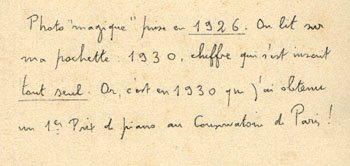 Photo "magique" prise en 1926. On lit sur
ma pochette : 1930, chiffre qui s'est inscrit
tout seul. Or, c'est en 1930 que j'ai obtenu
un 1er Prix de piano au Conservatoire de Paris !